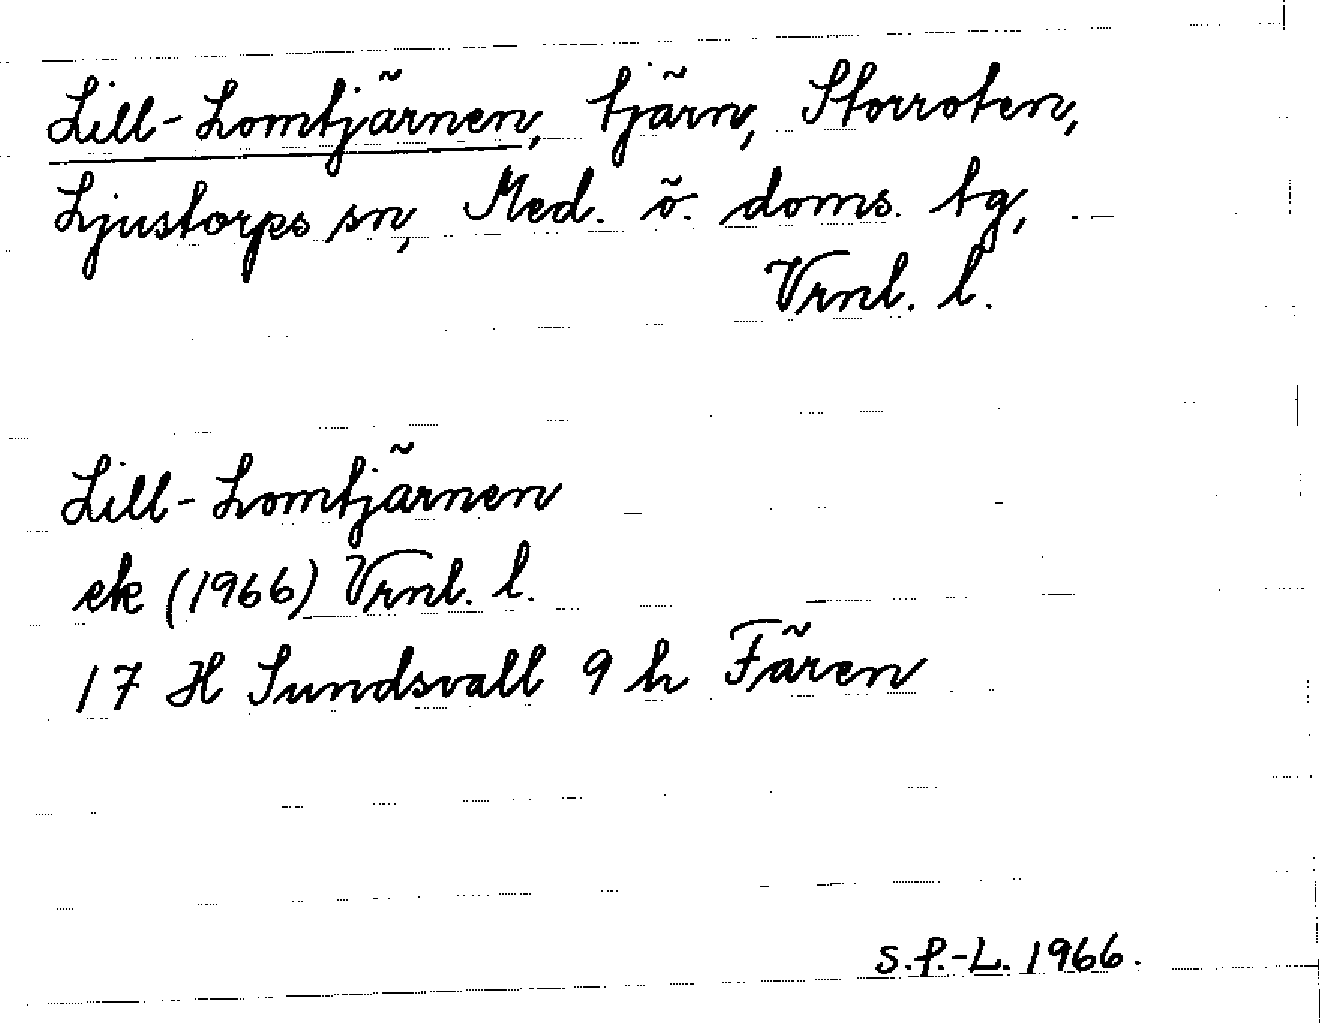 Lill-Lomtjärnen, tjärn, Storroten,
Ljustorps sn, Med. ö. doms. tg,
Vrnl. l.
Lill-Lomtjärnen
ek (1966) Vrnl. l.
17 H Sundsvall 9 h Fären
S.f.-L. 1966.